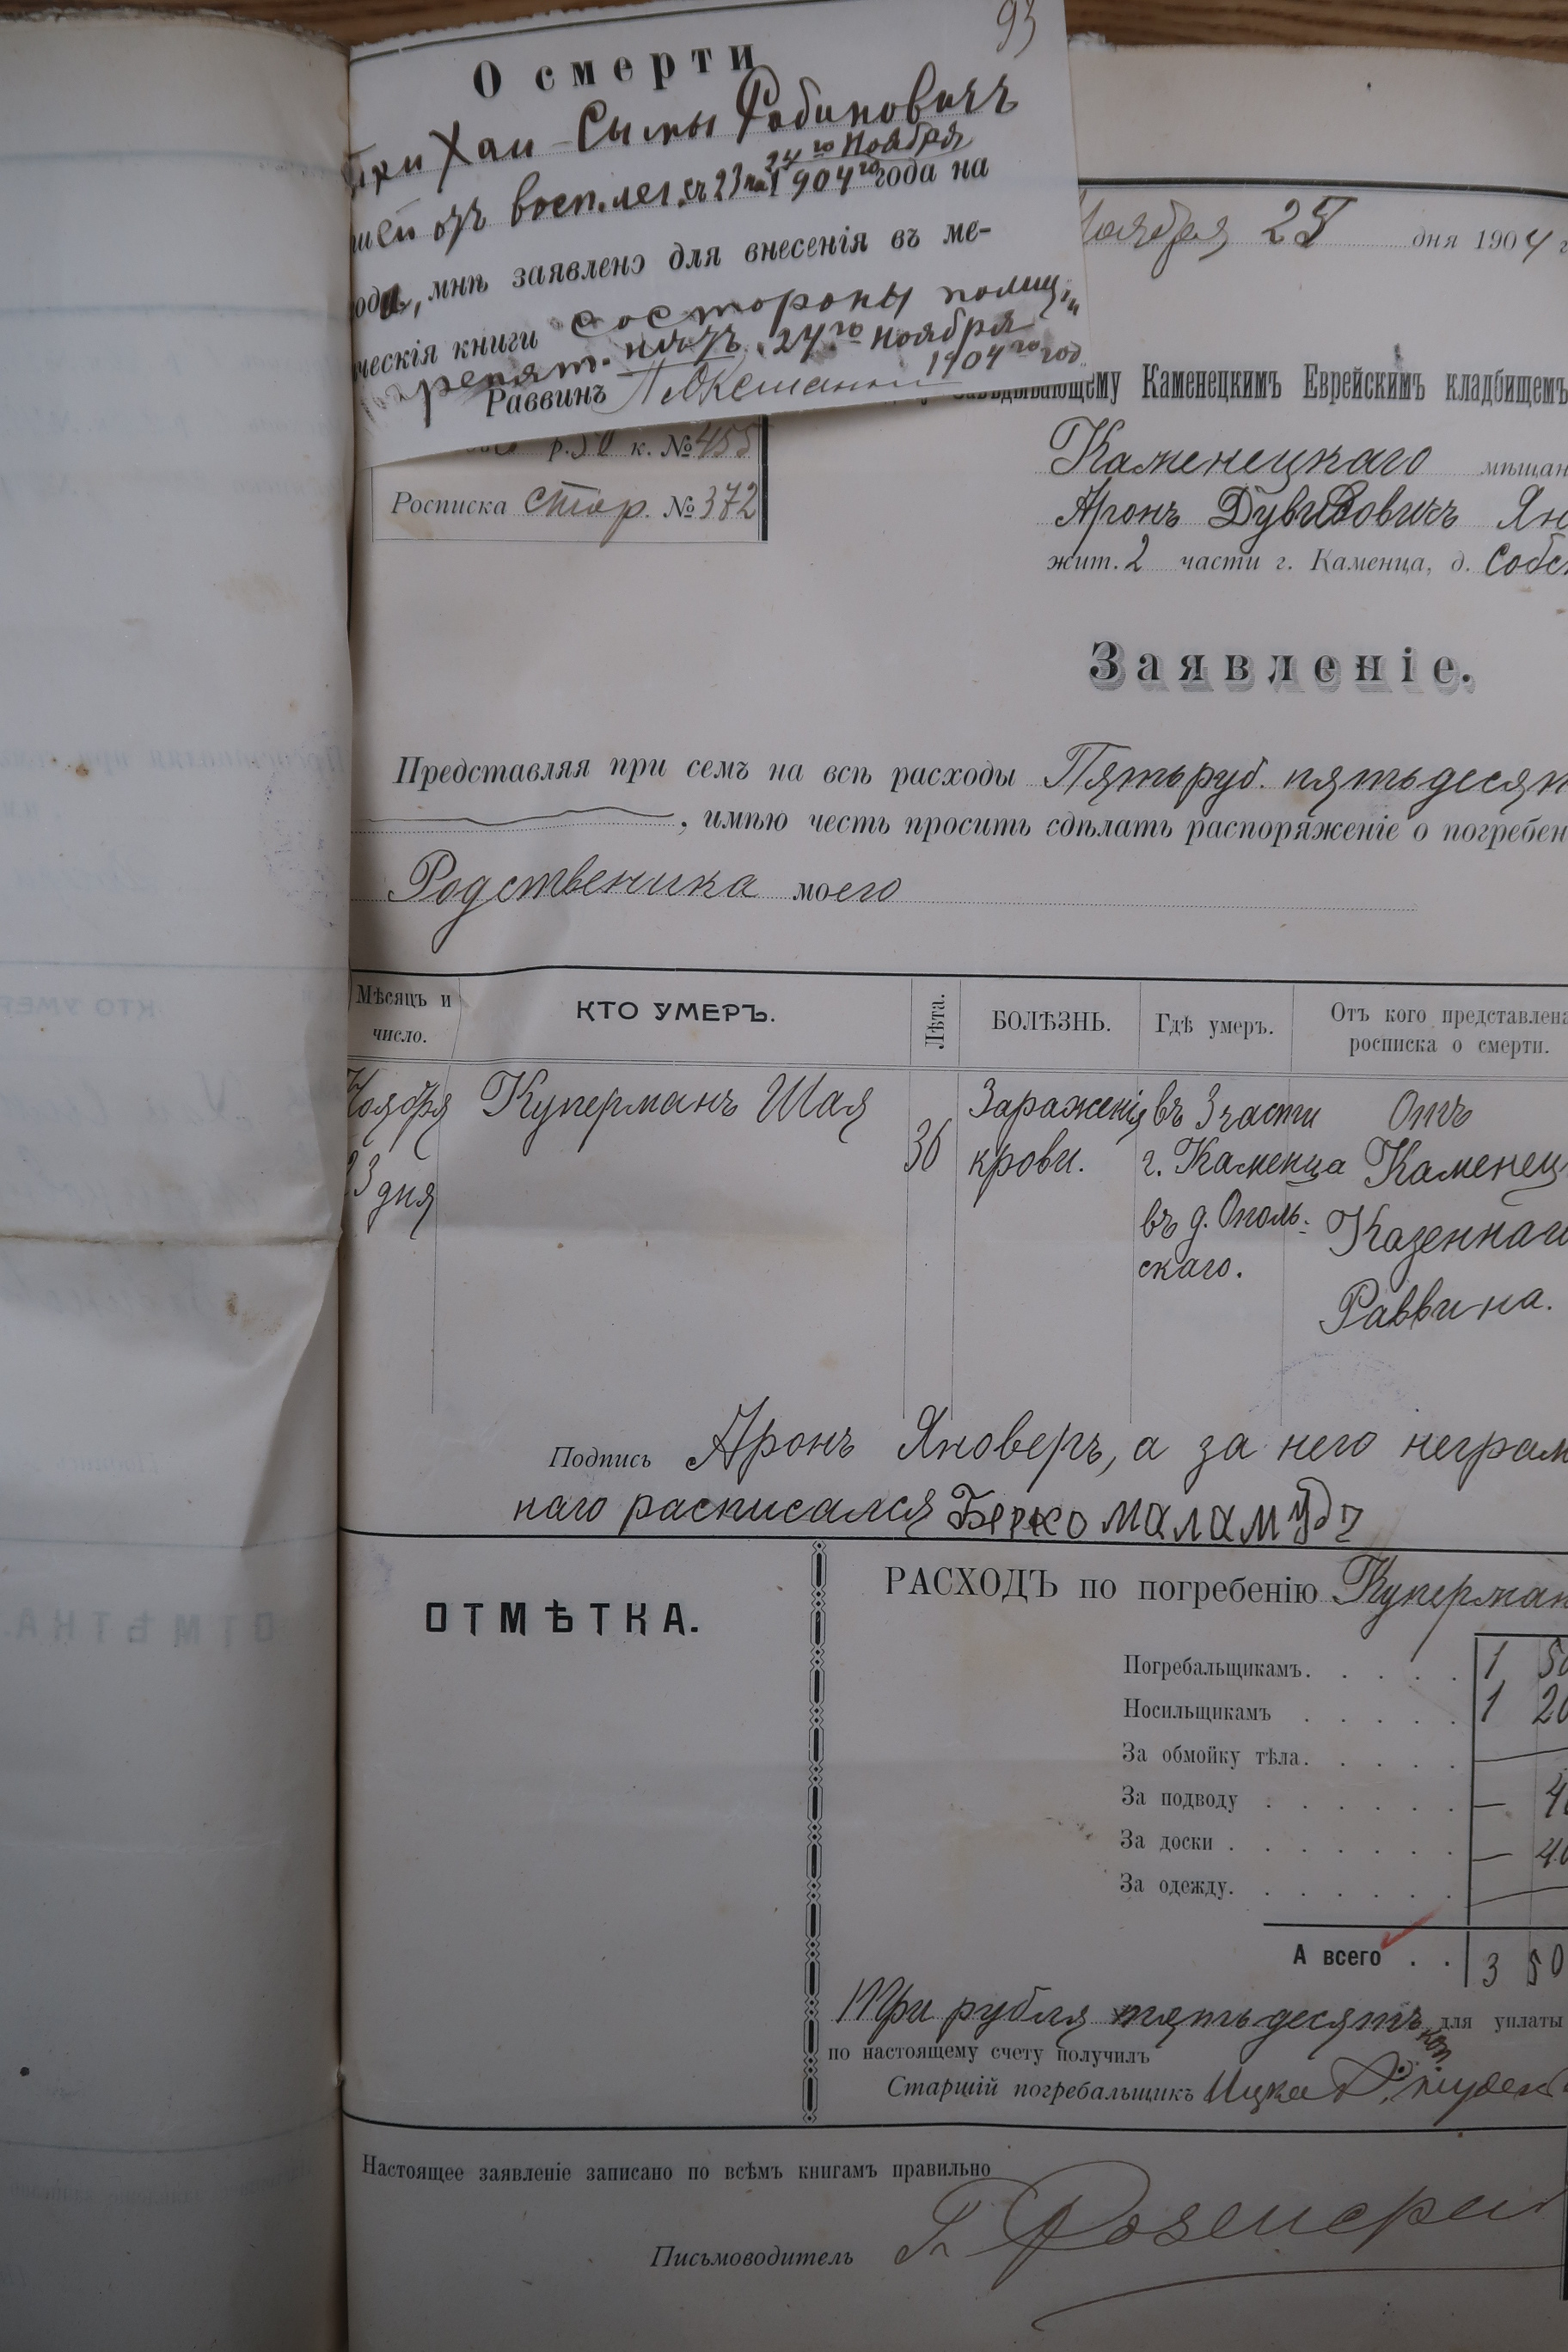 93
О смерти
Хаи-Симы Рабиновичъ
24го Ноября
отъ восп. лег. съ 23 на 1904го года на
мнѣ заявлено для внесенія въ ме-
ческія книги со стороны полиціи
24го ноября
1904го год
Раввинъ
Ноября 25 дня 1904 г
завѣдывающему Каменецкимъ Еврейскимъ кладбищемъ
р. 50 к. № 455
Росписка стар. № 372
Каменецкаго мѣщан
Аронъ Дувидовичъ Ян
жит. 2 части г. Каменца, д. собс
Заявленіе.
Представляя при семъ на всѣ расходы Пять руб. пятьдесят
, имѣю честь просить сдѣлать распоряженіе о погребен
Родственика моего
Мѣсяцъ и число. КТО УМЕРЪ. Лѣта. БОЛѢЗНЬ. Гдѣ умеръ. Отъ кого представлена росписка о смерти.
Ноября Куперманъ Шая 36 Зараженія въ 3 части Отъ
23 дня крови. г. Каменца Каменец
въ д. Ополь- Казеннаг
скаго. Раввина.
Подпись Аронъ Яноверъ, а за него неграм
наго расписался Берко маламудъ
ОТМѢТКА.
РАСХОДЪ по погребенію Куперман
Погребальщикамъ. 1 50
Носильщикамъ 1 20
За обмойку тѣла. —
За подводу — 40
За доски — 40
За одежду. —
А всего 3 50
Три рубля пятьдесятъ коп для уплаты
по настоящему счету получилъ
Старшій погребальщикъ Ицка
Настоящее заявленіе записано по всѣмъ книгамъ правильно
Письмоводитель
ОТМѢТКА.